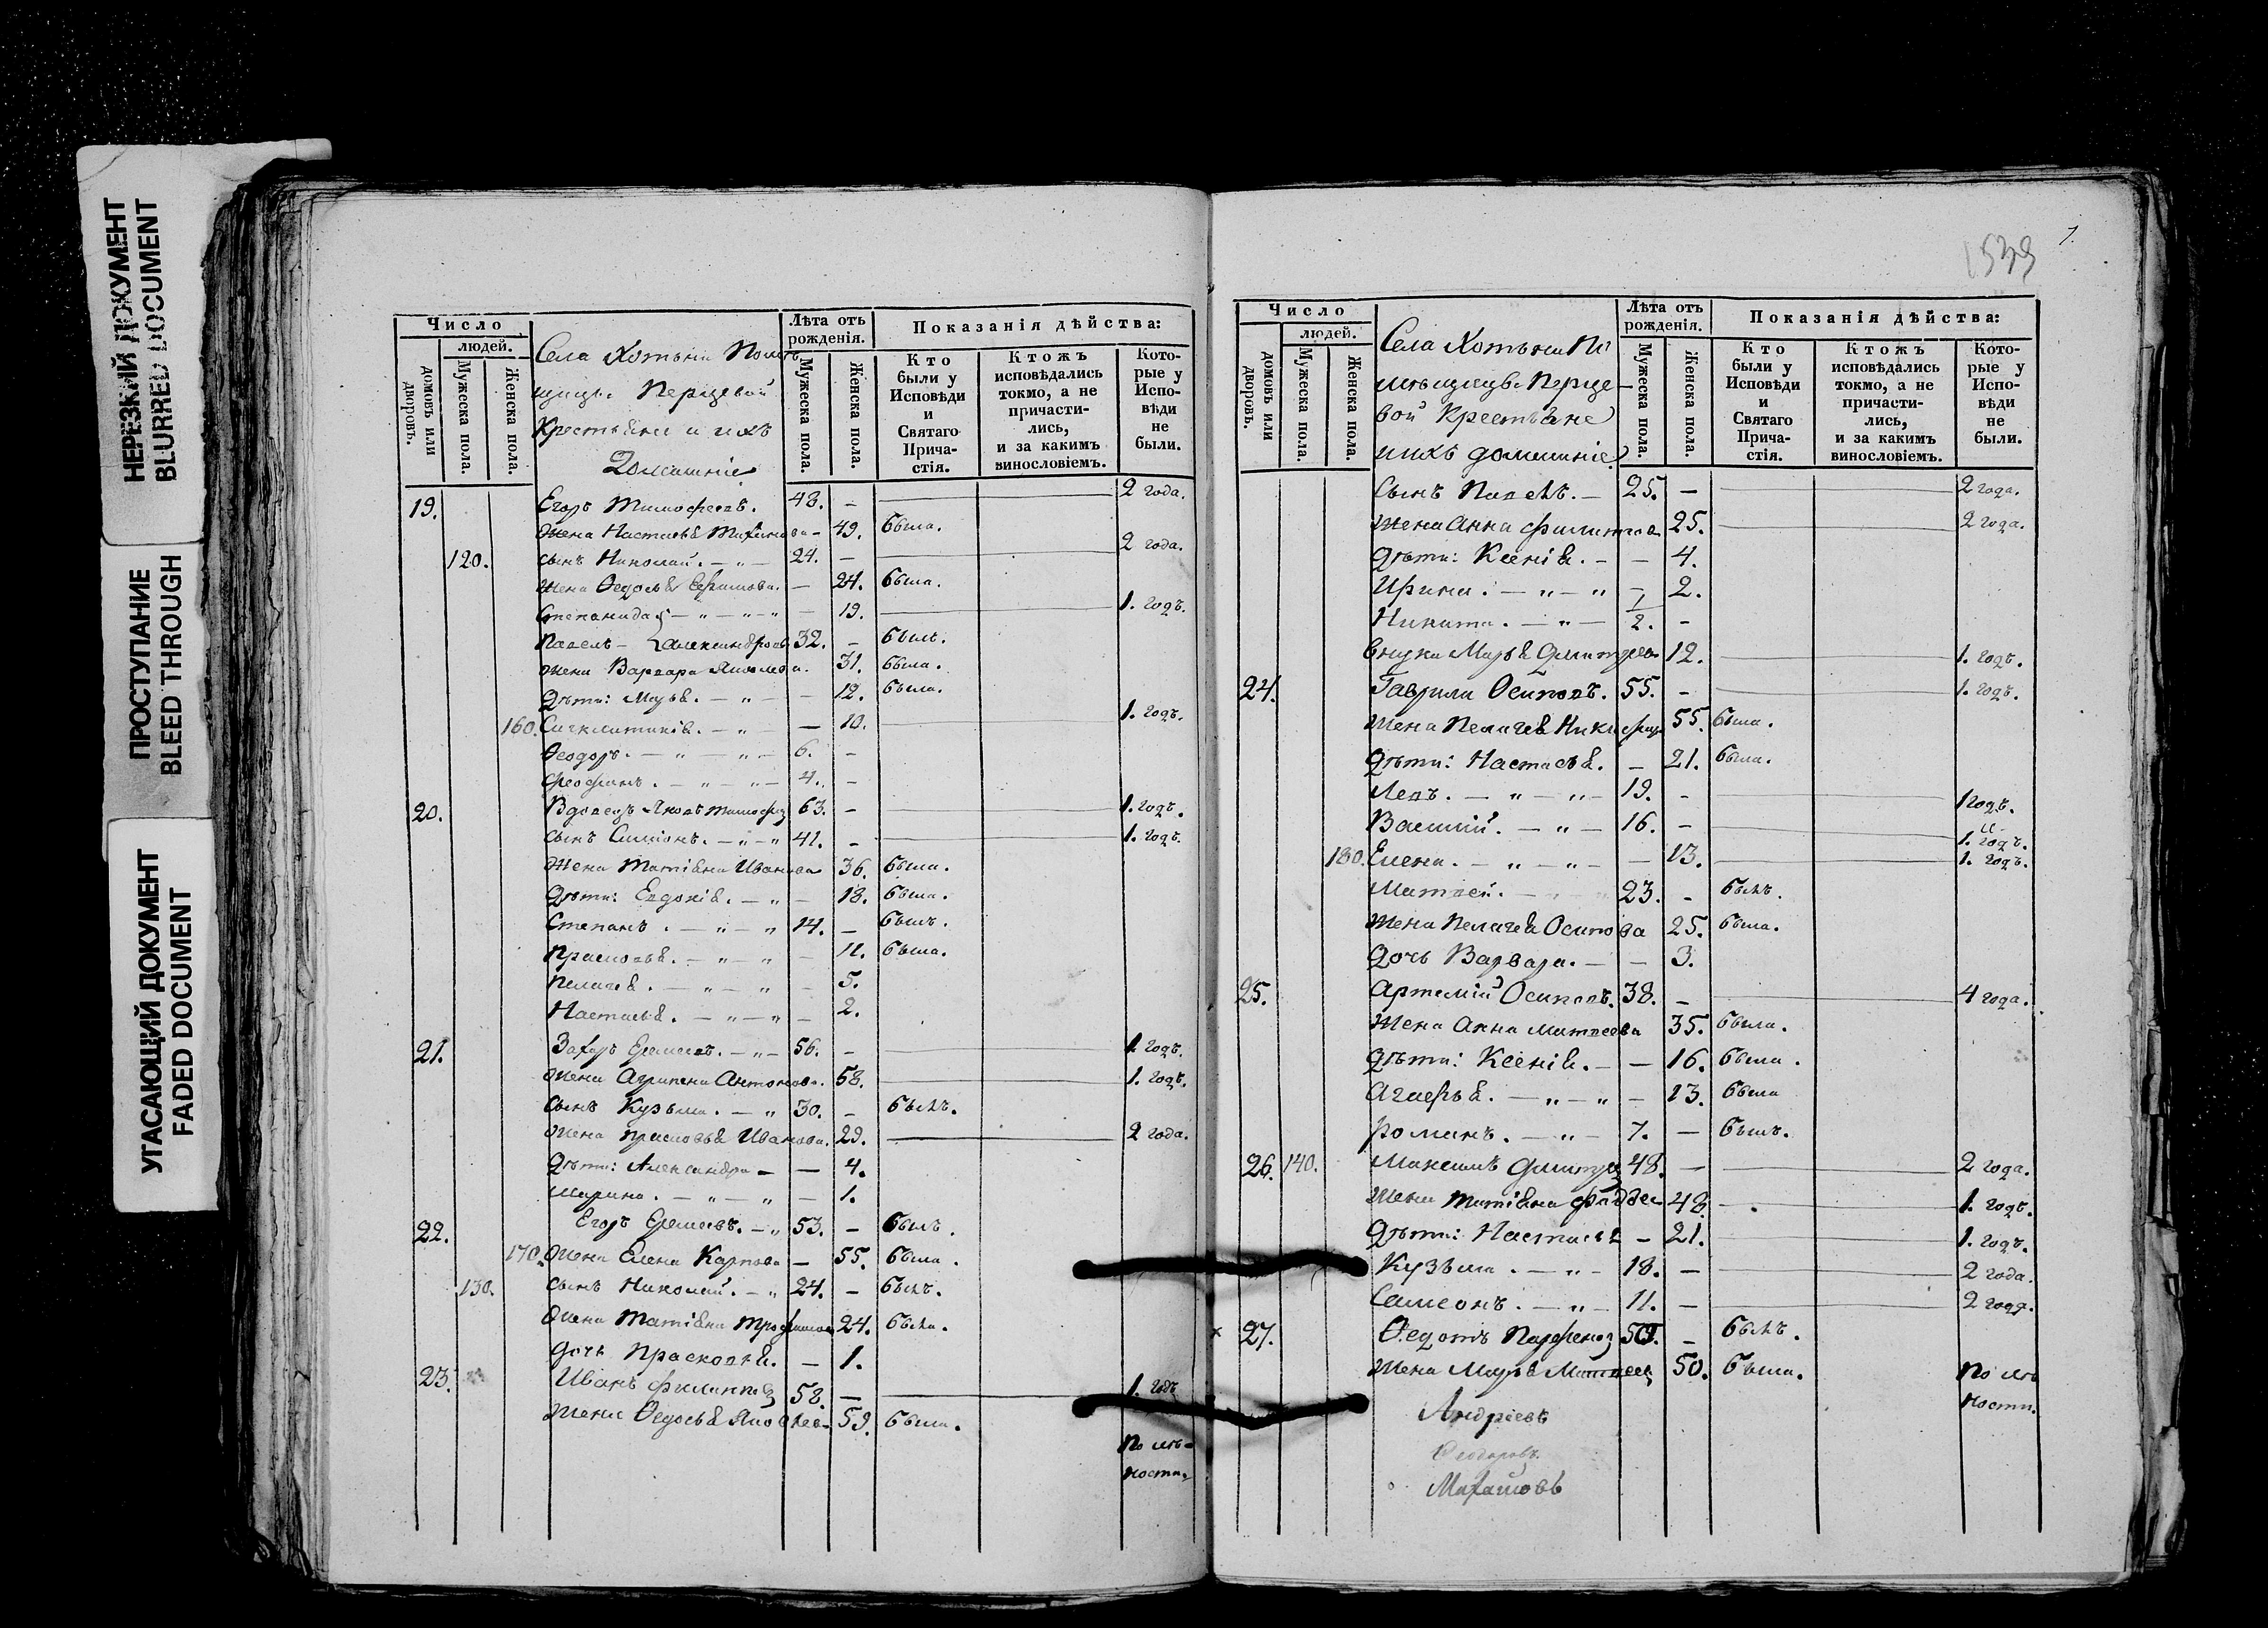 НЕРЕЗКИЙ ДОКУМЕНТ
BLURRED DOCUMENT
ПРОСТУПАНИЕ
BLEED THROUGH
УГАСАЮЩИЙ ДОКУМЕНТ
FADED DOCUMENT
Число
людей.
домовъ или дворовъ.
Мужеска пола.
Женска пола.
Села Хотыни Помѣ
щицы Перцевой
Крестьяне и ихъ
Домашніе
Лѣта отъ рожденія.
Мужеска пола.
Женска пола.
Показанія дѣйства:
Кто были у Исповѣди и Святаго Прича- стія.
Ктожъ исповѣдались токмо, а не причасти- лись, и за какимъ винословіемъ.
Кото- рые у Испо- вѣди не были.
19. Егоръ Тимофеевъ. 48. - 2 года.
жена Настасья 49. была.
120. сынъ Николай. - „ - 24. - 2 года.
жена Ѳедосья Ефимова. - 24. была.
Степанида - „ - „ - „ - 19. 1. годъ.
Павелъ - Александровъ 32. - былъ.
жена Варвара Яковлева. 31. была.
дѣти: Марья. - „ - - 12. была.
160. Синклитикія. - „ - - 10. 1. годъ.
Ѳеодоръ. - „ - „ - 6. -
Феофанъ. - „ - „ - 4. -
20. Вдовецъ Яковъ Тимофеев 63. - 1. годъ.
сынъ Симіонъ. - „ - „ 41. - 1. годъ.
жена Татіяна Иванова 36. была.
дѣти: Евдокія. - „ - 18. была.
Степанъ. - „ - „ 14. - былъ.
Прасковья. - „ - „ - 11. была.
Пелагея. - „ - „ - 5.
Настасья. - „ - „ - 2.
21. Захаръ Еремеевъ. - „ - 56. - 1. годъ.
жена Агрипена Антонова. 58. 1. годъ.
сынъ Кузьма. - „ 30. - былъ.
жена Прасковья Иванова. 29. 2 года.
дѣти: Александра - - 4.
Марина. - „ - „ - 1.
22. Егоръ Еремеевъ. - „ 53. - былъ.
170. жена Елена Карпова - 55. была.
130. сынъ Николай. - „ 24. - былъ.
жена Татіяна Трофимова 24. была.
дочь Прасковья. - 1.
23. Иванъ Филиппов 58. - 1. годъ
жена Ѳедосья Яковлева 59. была.
1.
Число
людей.
домовъ или дворовъ.
Мужеска пола.
Женска пола.
Села Хотыни По
мѣщицы Перце-
вой Крестьяне
и ихъ домашніе
Лѣта отъ рожденія.
Мужеска пола.
Женска пола.
Показанія дѣйства:
Кто были у Исповѣди и Святаго Прича- стія.
Ктожъ исповѣдались токмо, а не причасти- лись, и за какимъ винословіемъ.
Кото- рые у Испо- вѣди не были.
Сынъ Павелъ. - 25. - 2 года.
жена Анна Филипова 25. 2 года.
дѣти: Ксенія. - - 4.
Ирина. - „ - „ - 2.
Никита. - „ - 1/2. -
Внука Марья Дмитрев 12. 1. годъ.
24. Гаврила Осиповъ. 55. - 1. годъ.
жена Пелагея 55. была.
дѣти: Настасья. - 21. была.
Левъ. - „ - „ - 19. - 1 годъ.
Василій. - „ - 16. - 1. годъ.
180. Елена. - „ - „ - - 13. 1. годъ.
Матвей. 23. - былъ.
жена Пелагея Осипова 25. была.
дочь Варвара. - - 3.
25. Артемій Осиповъ. 38. - 4 года.
жена Анна Матвеева 35. была.
дѣти: Ксенія. - - 16. была.
Агафья. - „ - „ - 13. была
Романъ. - „ - 7. - былъ.
26. 140. Максимъ Дмитріев 48. - 2 года.
жена Татіяна Фаддее 48. - . 1. годъ.
дѣти: Настасья - 21. 1. годъ.
Кузьма. - „ - 18. - 2 года.
Самсонъ. - „ - 11. - 2 года.
× 27. Ѳедотъ Парфенов - былъ.
жена Марья Матвеев 50. была.
Андреевъ
Ѳеодоровъ